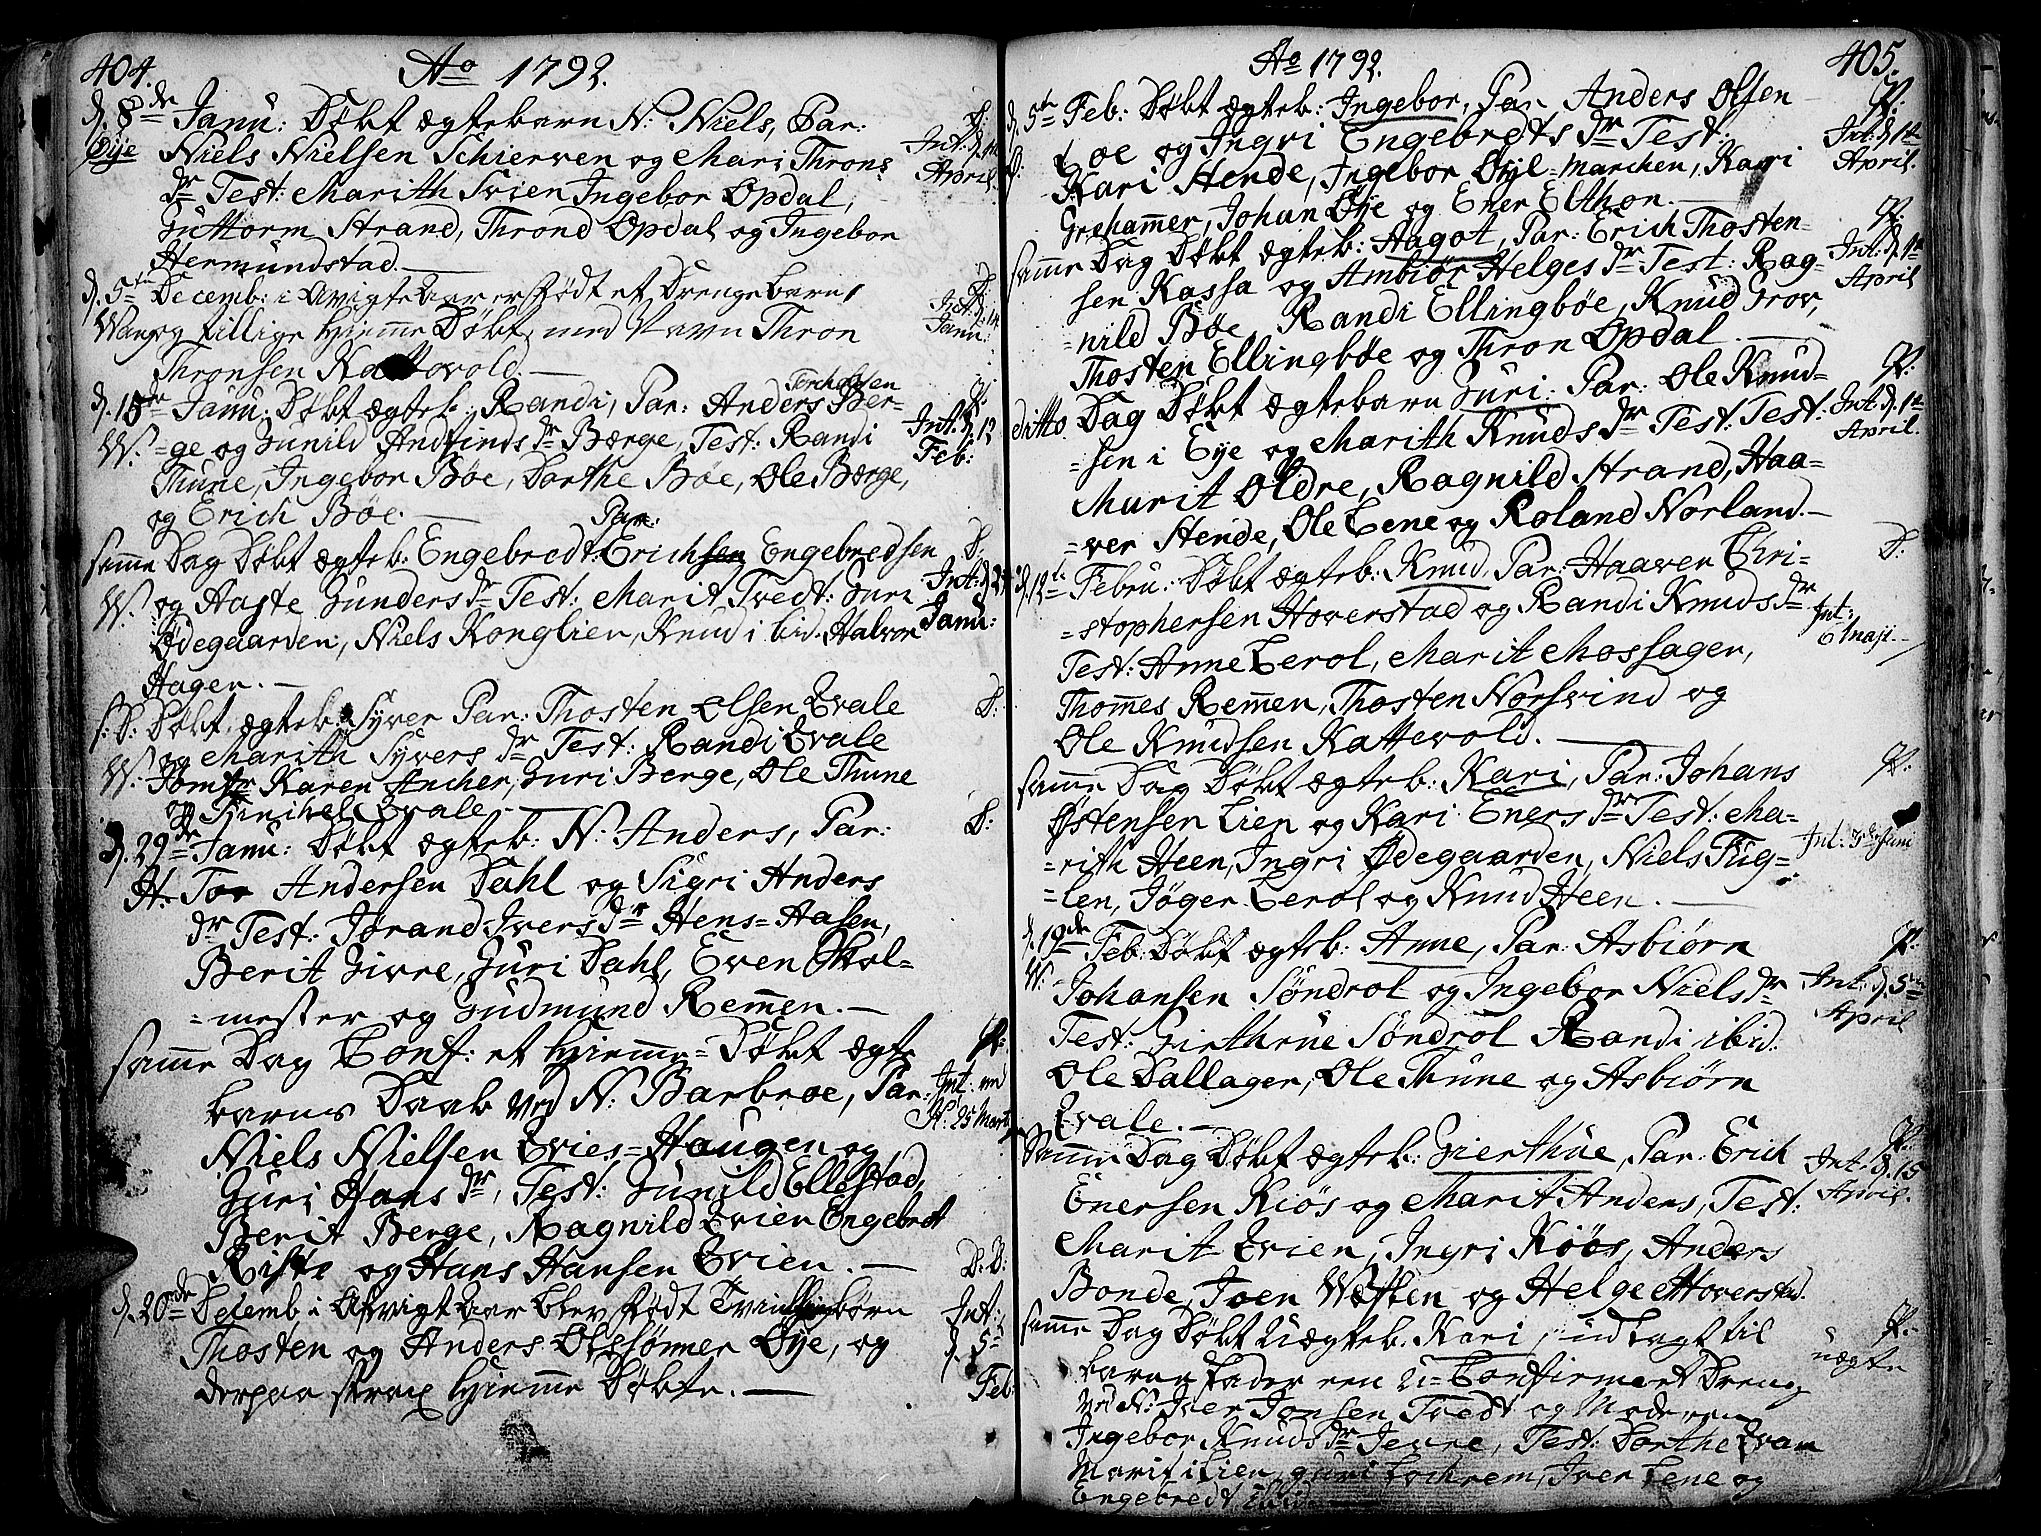 404.
Ao 1792.
d. 8de Janu: Døbt ægtebarn N: Niels, Par:
Øye Niels Nielsen Schierven og Mari Throns
dr Test: Marith Svien Ingebor Opdal,
Guttorm Strand, Thrond Opdal og Ingebor
Hermundstad.
D:
Int: d.
April.
d. 5te Decemb: i Avigte Aar er født et Drengebarn
Wang og tillige hiemme Døbt, med Navn Thron
Thronsen Kattevold.
D:
Int: d. 14
Janu:
d. 15de Janu: Døbt ægteb: Randi, Par: Anders Ber-
W. =ge og Gunild Andfinds dr Berge, Test: Randi
Thune, Ingebor Bøe, Dorthe Bøe, Ole Berge,
og Erich Bøe.
P:
Int: d. 12
Feb:
Par:
samme Dag Døbt ægteb: Engebredt Erichsen Engebredsen
W. og Aagte Gunders dr Test: Marit Tvedt: Guri
Ødegaarden, Niels Konglien, Knud ibid. Halvor
Hagen.
D:
Int: d.
Janu:
s: D: Døbt ægteb: Syver Par: Thosten Olsen Qvale
og Marith Syvers dr Test: Randi Qvale
W. Jomfr Karen Ancher, Guri Berge, Ole Thune
og Qvale
D:
d. 29de Janu: Døbt ægteb: N: Anders, Par:
H. Toe Andersen Dahl og Sigri Anders
dr Test: Jørand Ivers dr Hens=Aasen,
Berit Givre, Guri Dahl, Even Skol=
=mester og Gudmund Remmen.
D:
samme Dag Conf: et hiemme=Døbt ægte
barns Daab ved N: Barbroe, Par:
Niels Nielsen Qvies=Haugen og
Guri Hans dr, Test: Gunild Ellestad,
Berit Berge, Ragnild Qvien Engebret
Riste og Hans Hansen Qvien.
P:
Int: ved
H: 25 Marti
d. 20de Decemb, i Afvigt Aar blev født Tvillingbørn
Thosten og Anders Olssønner Øye, og
derpaa strax hiemme Døbte.
D: D:
Int:
d. 5te
Feb:
Ao 1792.
405.
d. 5te Feb: Døbt ægteb: Ingebor, Par Anders Olsen
Loe og Ingri Engebredts dr Test:
Kari Hende, Ingebor Øyl=Marchen, Kari
Grehammer, Johan Øye og Ener Elthon.
P:
Int: d. 1te
April.
samme Dag Døbt ægteb: Aagot, Par: Erich Thosten-
sen Kassa og Ambiør Helges dr Test: Rag=
=nild Bøe, Randi Ellingbøe, Knud Grov,
Thosten Ellingbøe og Thron Opdal.
P:
Int: d. 1te
April
ditto Dag Døbt ægtebarn Guri: Par: Ole Knud=
=sen i Eye og Marith Knuds dr Test: Test:
Murit Oldre, Ragnild Strand, Haa=
=ver Hende, Ole Lene og Roland Norland.
P:
Int: d. 1te
April.
d. 12te Febru: Døbt ægteb: Knud, Par: Haaver Chri-
=stophersen Hoverstad og Randi Knuds dr
Test: Anne Lerol, Marit Mossagen,
Thommes Remmen, Thosten Norsvind og
Ole Knudsen Kattevold.
D:
Int:
Maji.
samme Dag Døbt ægteb: Kari, Par: Johans
Østensen Lien og Kari Eners dr Test: Ma=
=rith Heen, Ingri Ødegaarden, Niels Fug=
=len, Jøger Lerol og Knud Heen.
P:
d. 19de Feb: Døbt ægteb: Anne, Par: Asbiørn
W. Johansen Søndrol og Ingebor Niels dr
Test: Girthrue Søndrol Randi ibid:
Ole Dallagen, Ole Thune og Asbiørn
Qvale.
P:
Int: d. 5te
April
Samme Dag Døbt ægteb: Gierthue, Par: Erich
Enersen Kiøs og Marit Anders, Test:
Marit Qvien, Ingri Kiøs, Anders
Bonde, Joen Wæsten og Helge Hoverstad.
P:
Int: d. 15
April.
samme Dag Døbt Uægteb. Kari, udlagt til
barne fader een U=Confirmert Dreng
ved N: Iver Jonsen Tvedt og Moderen
Ingebor Knuds dr Jevre, Test: Dorthe Qvam
Marit i Lien, Guri Lochrem, Iver Lene og
Engebredt
P:
uægte